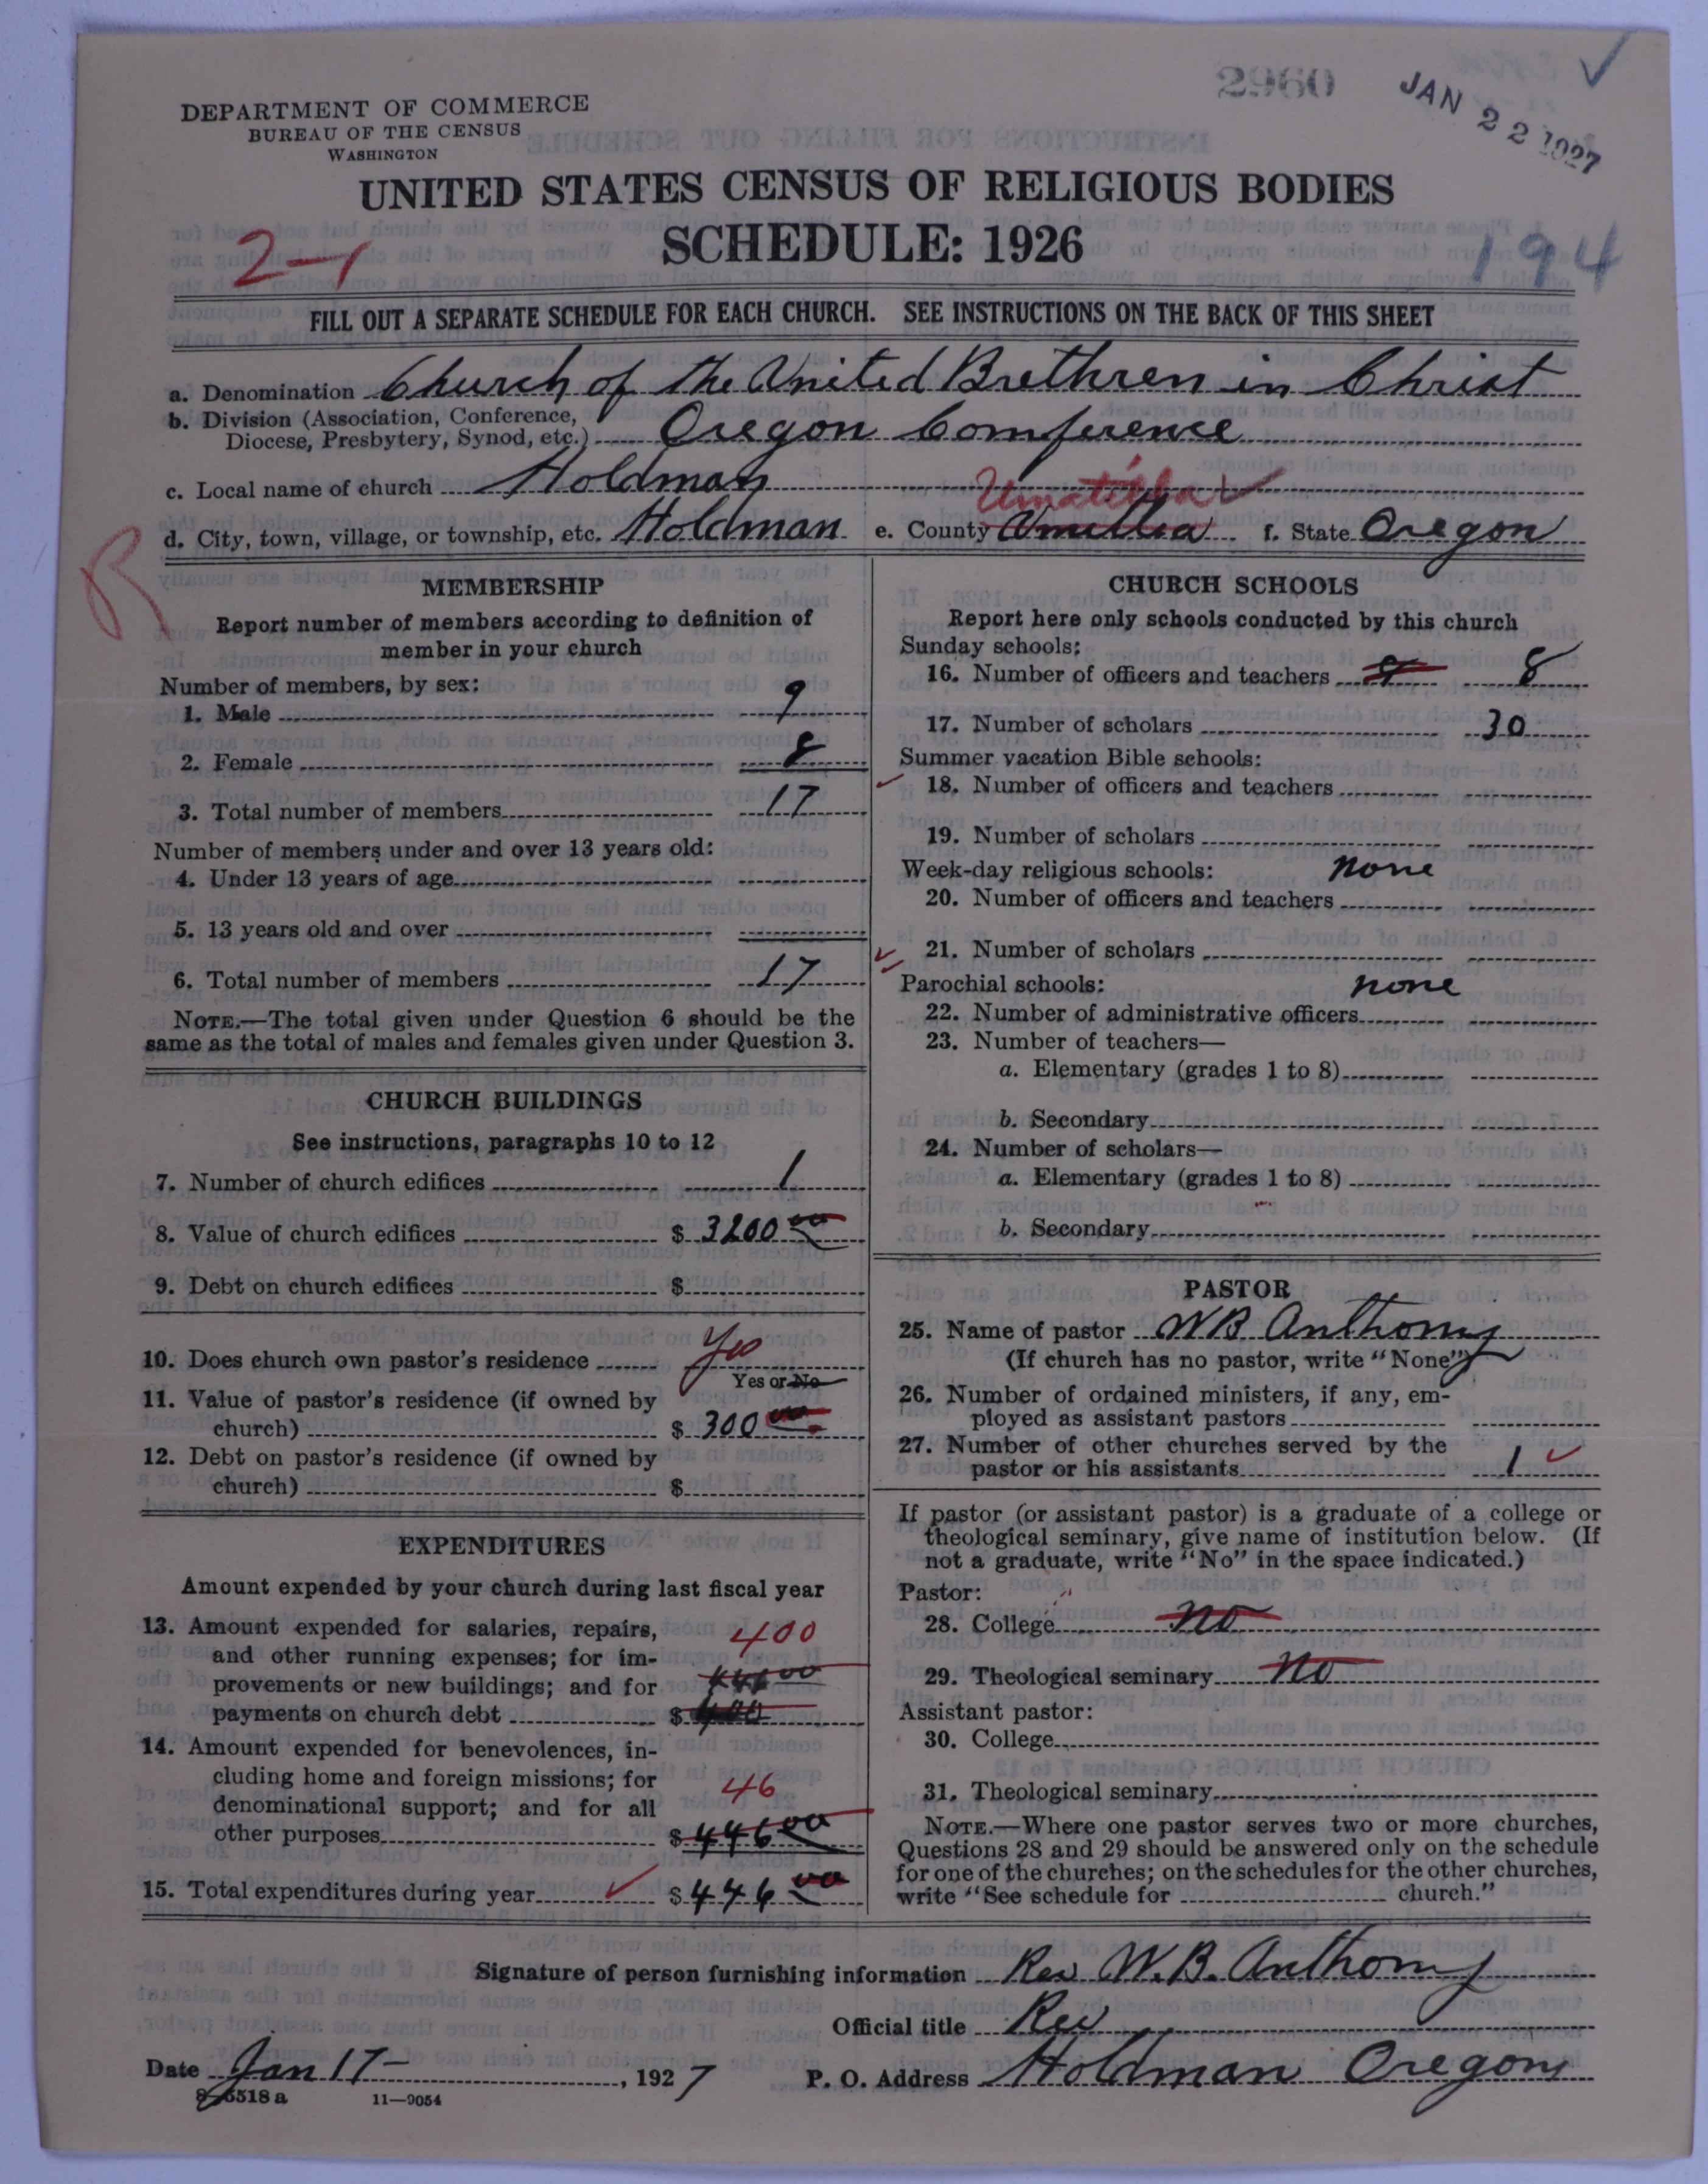 2960
JAN 22 1927
DEPARTMENT OF COMMERCE
BUREAU OF THE CENSUS
WASHINGTON
UNITED STATES CENSUS OF RELIGIOUS BODIES
SCHEDULE: 1926
2-1
194
FILL OUT A SEPARATE SCHEDULE FOR EACH CHURCH. SEE INSTRUCTIONS ON THE BACK OF THIS SHEET
a. Denomination Church of the United Brethren in Christ
b. Division (Association, Conference,
Diocese, Presbytery, Synod, etc.) Oregon Comference
c. Local name of church Holdman
Umatilla
d. City, town, village, or township, etc. Holdman e. County Umillia f. State Oregon
R
MEMBERSHIP
Report number of members according to definition of
member in your church
Number of members, by sex:
1. Male 9
2. Female 8
3. Total number of members 17
Number of members under and over 13 years old:
4. Under 13 years of age
5. 13 years old and over
6. Total number of members 17
NOTE.—The total given under Question 6 should be the
same as the total of males and females given under Question 3.
CHURCH BUILDINGS
See instructions, paragraphs 10 to 12
7. Number of church edifices 1
8. Value of church edifices $ 3200 00
9. Debt on church edifices $
10. Does church own pastor's residence Yes
Yes or No
11. Value of pastor's residence (if owned by
church) $ 300 00
12. Debt on pastor's residence (if owned by
church) $
EXPENDITURES
Amount expended by your church during last fiscal year
13. Amount expended for salaries, repairs, 400
and other running expenses; for im-
provements or new buildings; and for 446 00
payments on church debt $ 400
14. Amount expended for benevolences, in-
cluding home and foreign missions; for 46
denominational support; and for all
other purposes $ 446 00
15. Total expenditures during year $ 446 00
CHURCH SCHOOLS
Report here only schools conducted by this church
Sunday schools:
16. Number of officers and teachers 8
17. Number of scholars 30
Summer vacation Bible schools:
18. Number of officers and teachers
19. Number of scholars
Week-day religious schools: none
20. Number of officers and teachers
21. Number of scholars
Parochial schools: none
22. Number of administrative officers
23. Number of teachers—
a. Elementary (grades 1 to 8)
b. Secondary
24. Number of scholars—
a. Elementary (grades 1 to 8)
b. Secondary
PASTOR
25. Name of pastor WB Anthony
(If church has no pastor, write "None")
26. Number of ordained ministers, if any, em-
ployed as assistant pastors
27. Number of other churches served by the
pastor or his assistants 1
If pastor (or assistant pastor) is a graduate of a college or
theological seminary, give name of institution below. (If
not a graduate, write "No" in the space indicated.)
Pastor:
28. College no
29. Theological seminary no
Assistant pastor:
30. College
31. Theological seminary
NOTE.—Where one pastor serves two or more churches,
Questions 28 and 29 should be answered only on the schedule
for one of the churches; on the schedules for the other churches,
write "See schedule for church."
Signature of person furnishing information Rev W.B. Anthony
Official title Rev
Date Jan 17- , 1927 P. O. Address Holdman Oregon
8-5518 a 11—9054